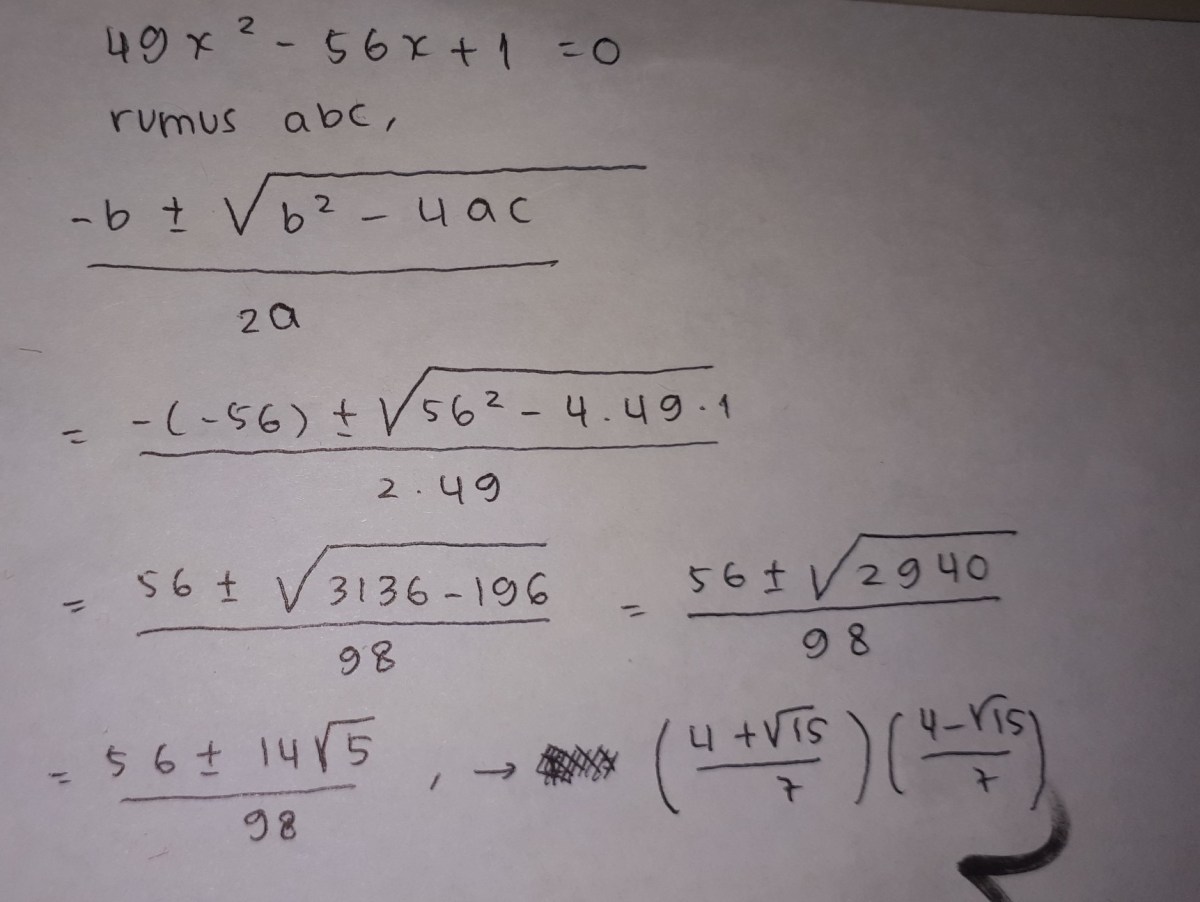 49x² - 56x + 1 = 0
rumus abc,
-b ± √b² - 4ac
2a
= -(-56) ± √56² - 4.49.1
2.49
= 56 ± √3136 - 196
98
= 56 ± √2940
98
= 56 ± 14√5
98
, → (4 + √15 / 7) (4 - √15 / 7)